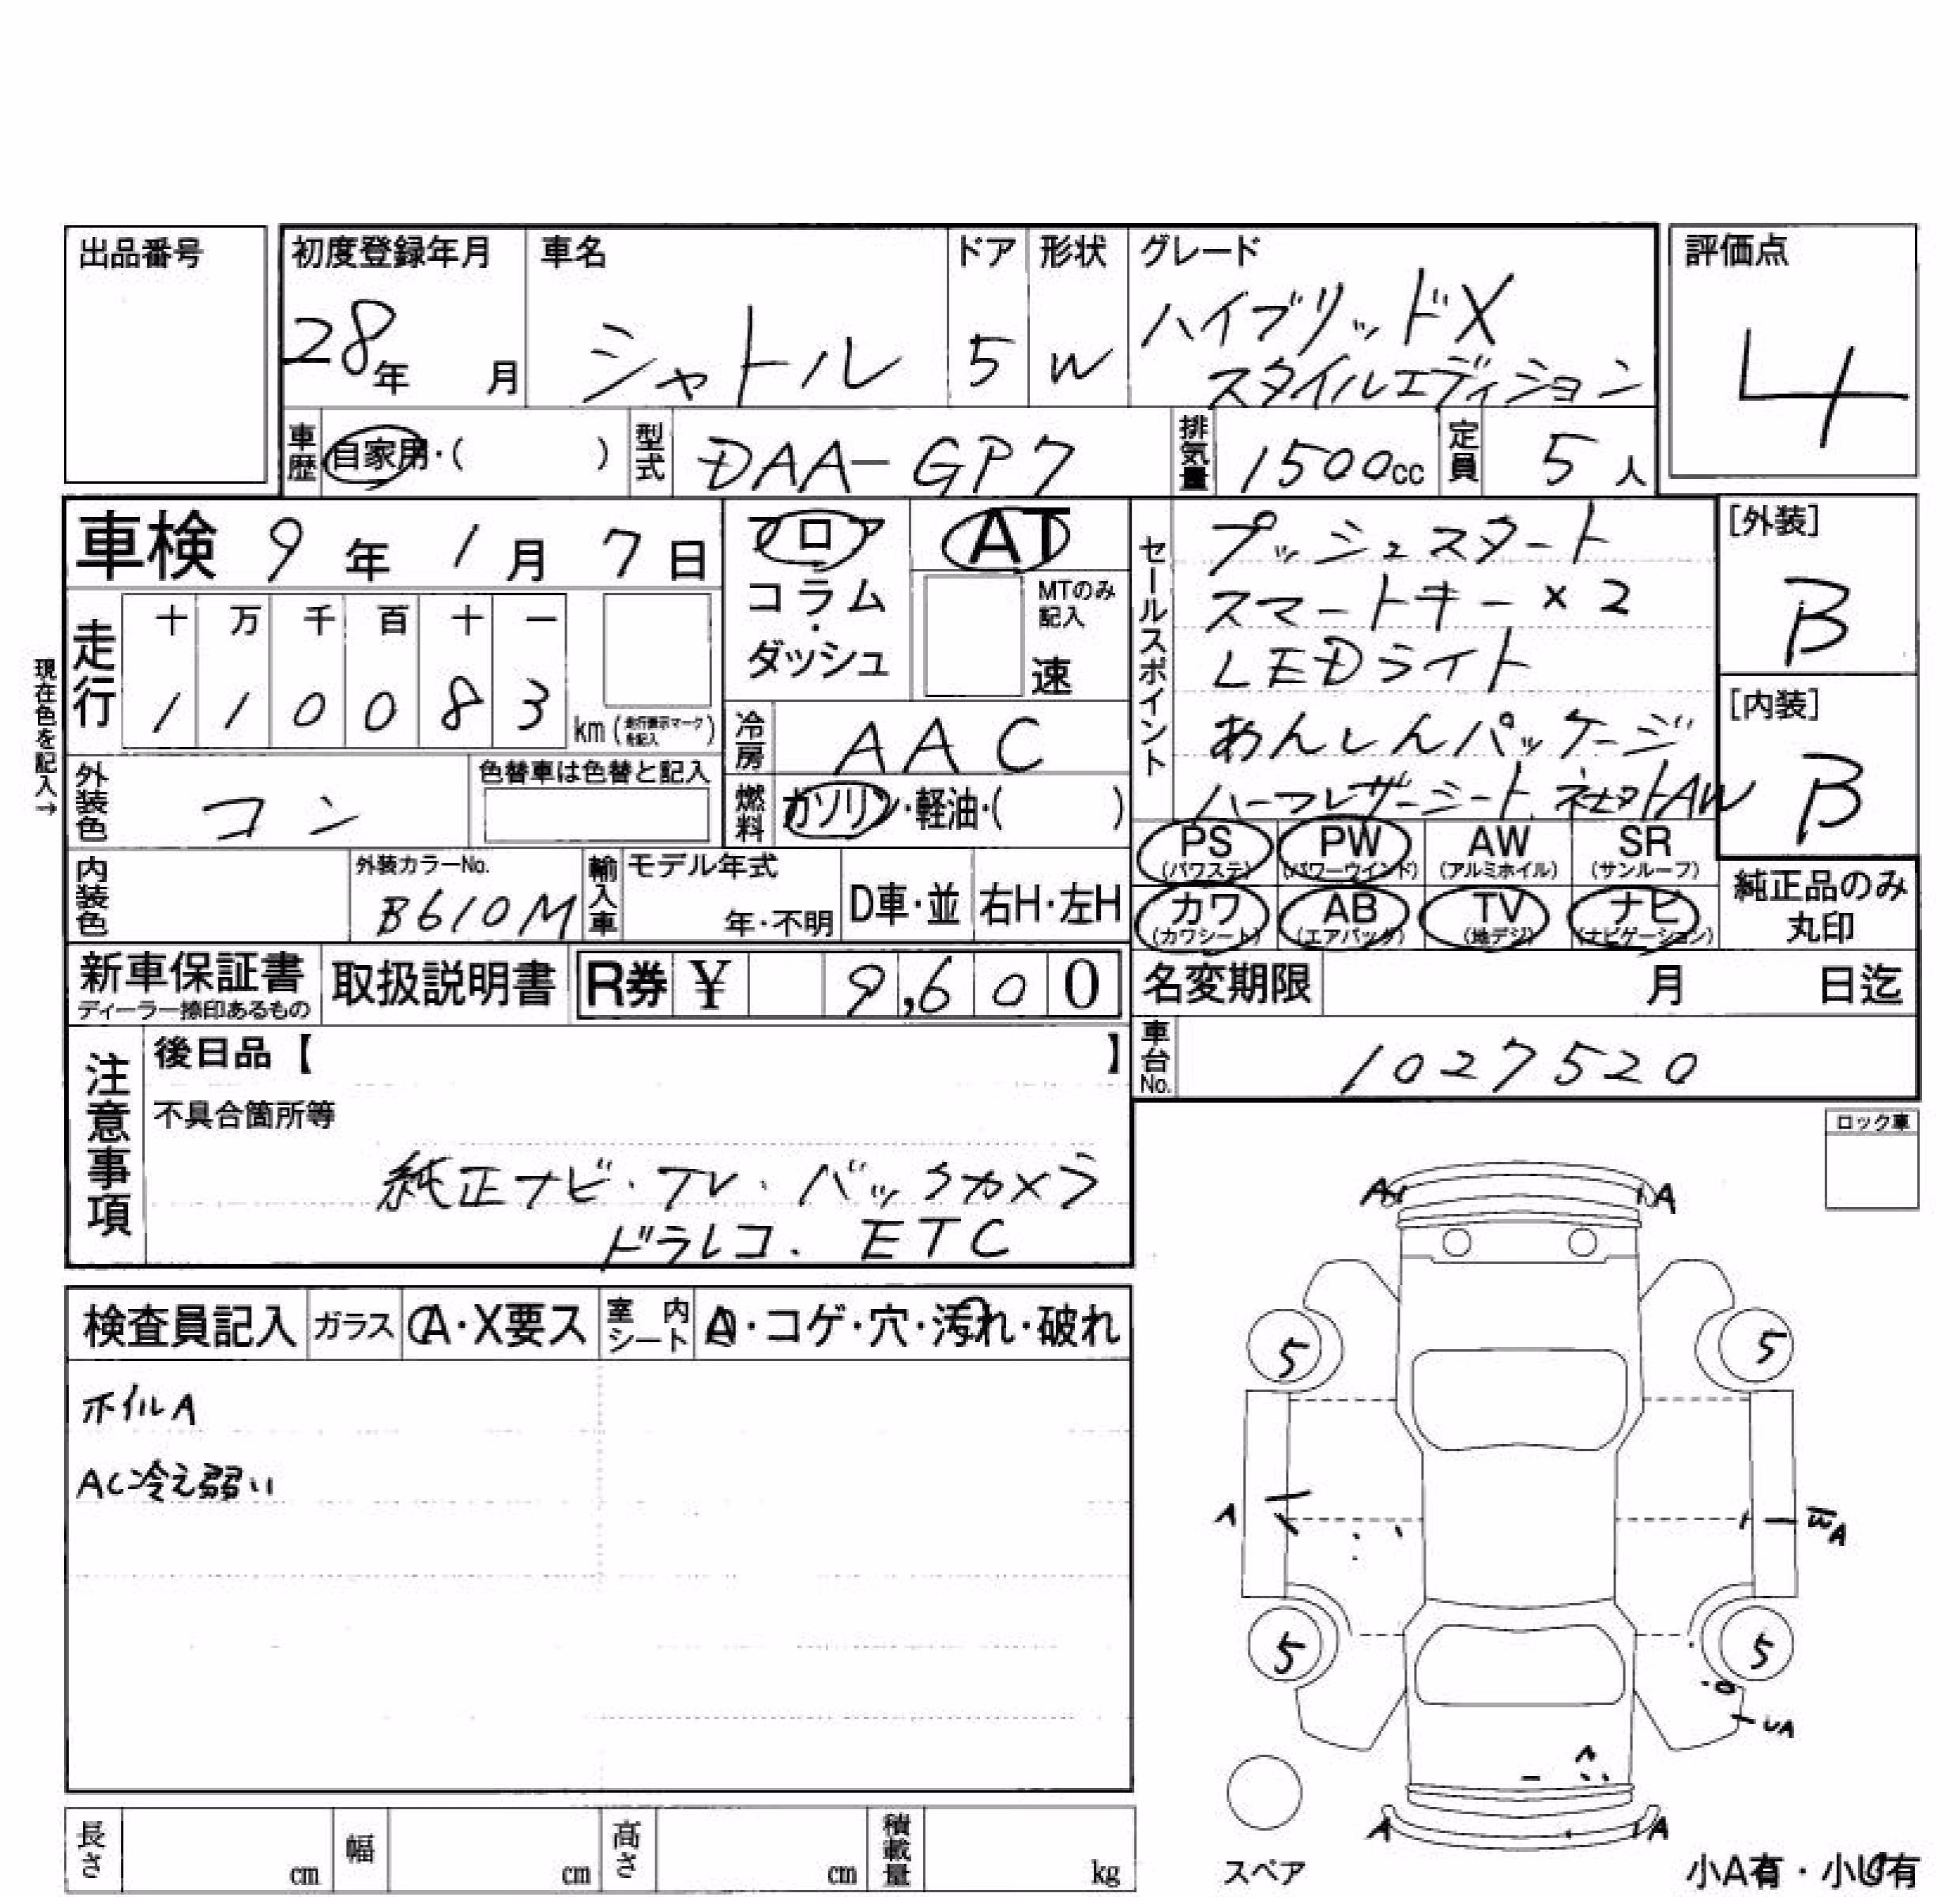 出品番号
初度登録年月 車名 ドア 形状 グレード 評価点
28年 月 シャトル 5 W ハイブリッドX
スタイルエディション
4
車歴 自家用・( ) 型式 DAA-GP7 排気量 1500cc 定員 5人
車検 9年 1月 7日
フロア
コラム
・
ダッシュ
AT
MTのみ
記入
速
セールスポイント
プッシュスタート
スマートキー×2
LEDライト
あんしんパッケージ
ハーフレザーシート、社外AW
[外装]
B
[内装]
B
現在色を記入→
走行 十 万 千 百 十 一
1 1 0 0 8 3 km (走行表示マークを記入)
冷房 AAC
外装色 コン 色替車は色替と記入
燃料 ガソリン・軽油・( )
PS PW AW SR
(パワステ) (パワーウインド) (アルミホイル) (サンルーフ)
カワ AB TV ナビ
(カワシート) (エアバッグ) (地デジ) (ナビゲーション)
純正品のみ
丸印
内装色 外装カラーNo.
B610M
輸入車 モデル年式
年・不明 D車・並 右H・左H
新車保証書
ディーラー捺印あるもの
取扱説明書 R券 ¥ 9,600
名変期限 月 日迄
車台No. 1027520
注意事項
後日品【 】
不具合箇所等
純正ナビ・TV・バックカメラ
ドラレコ. ETC
ロック車
検査員記入 ガラス A・X要ス 室内シート A・コゲ・穴・汚れ・破れ
ホイルA
AC冷え弱い
A A
5 5
A A
5 5
UA
A A
スペア
小A有・小U有
長さ cm 幅 cm 高さ cm 積載量 kg